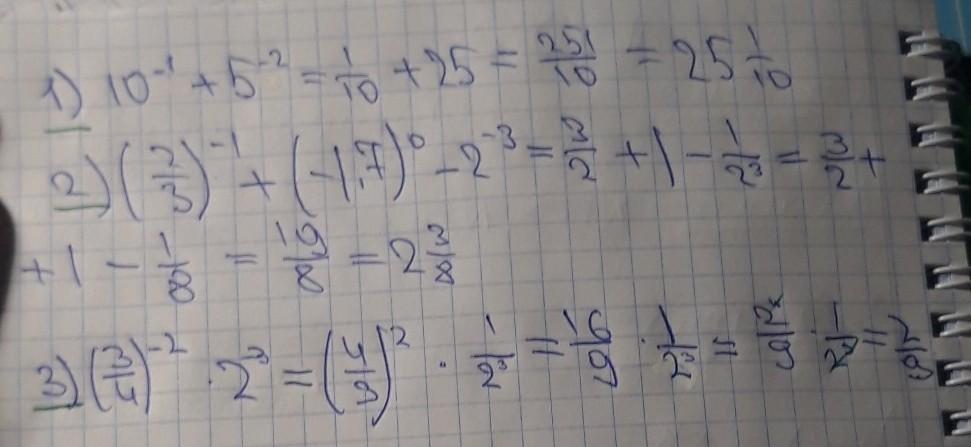 1) 10⁻¹ + 5⁻² = 1/10 + 25 = 251/10 = 25 1/10
2) (2/3)⁻¹ + (-1,7)⁰ - 2⁻³ = 3/2 + 1 - 1/2³ = 3/2 +
+ 1 - 1/8 = 19/8 = 2 3/8
3) (3/4)⁻² · 2³ = (4/3)² · 1/2³ = 16/9 · 1/2³ = · = 2/9